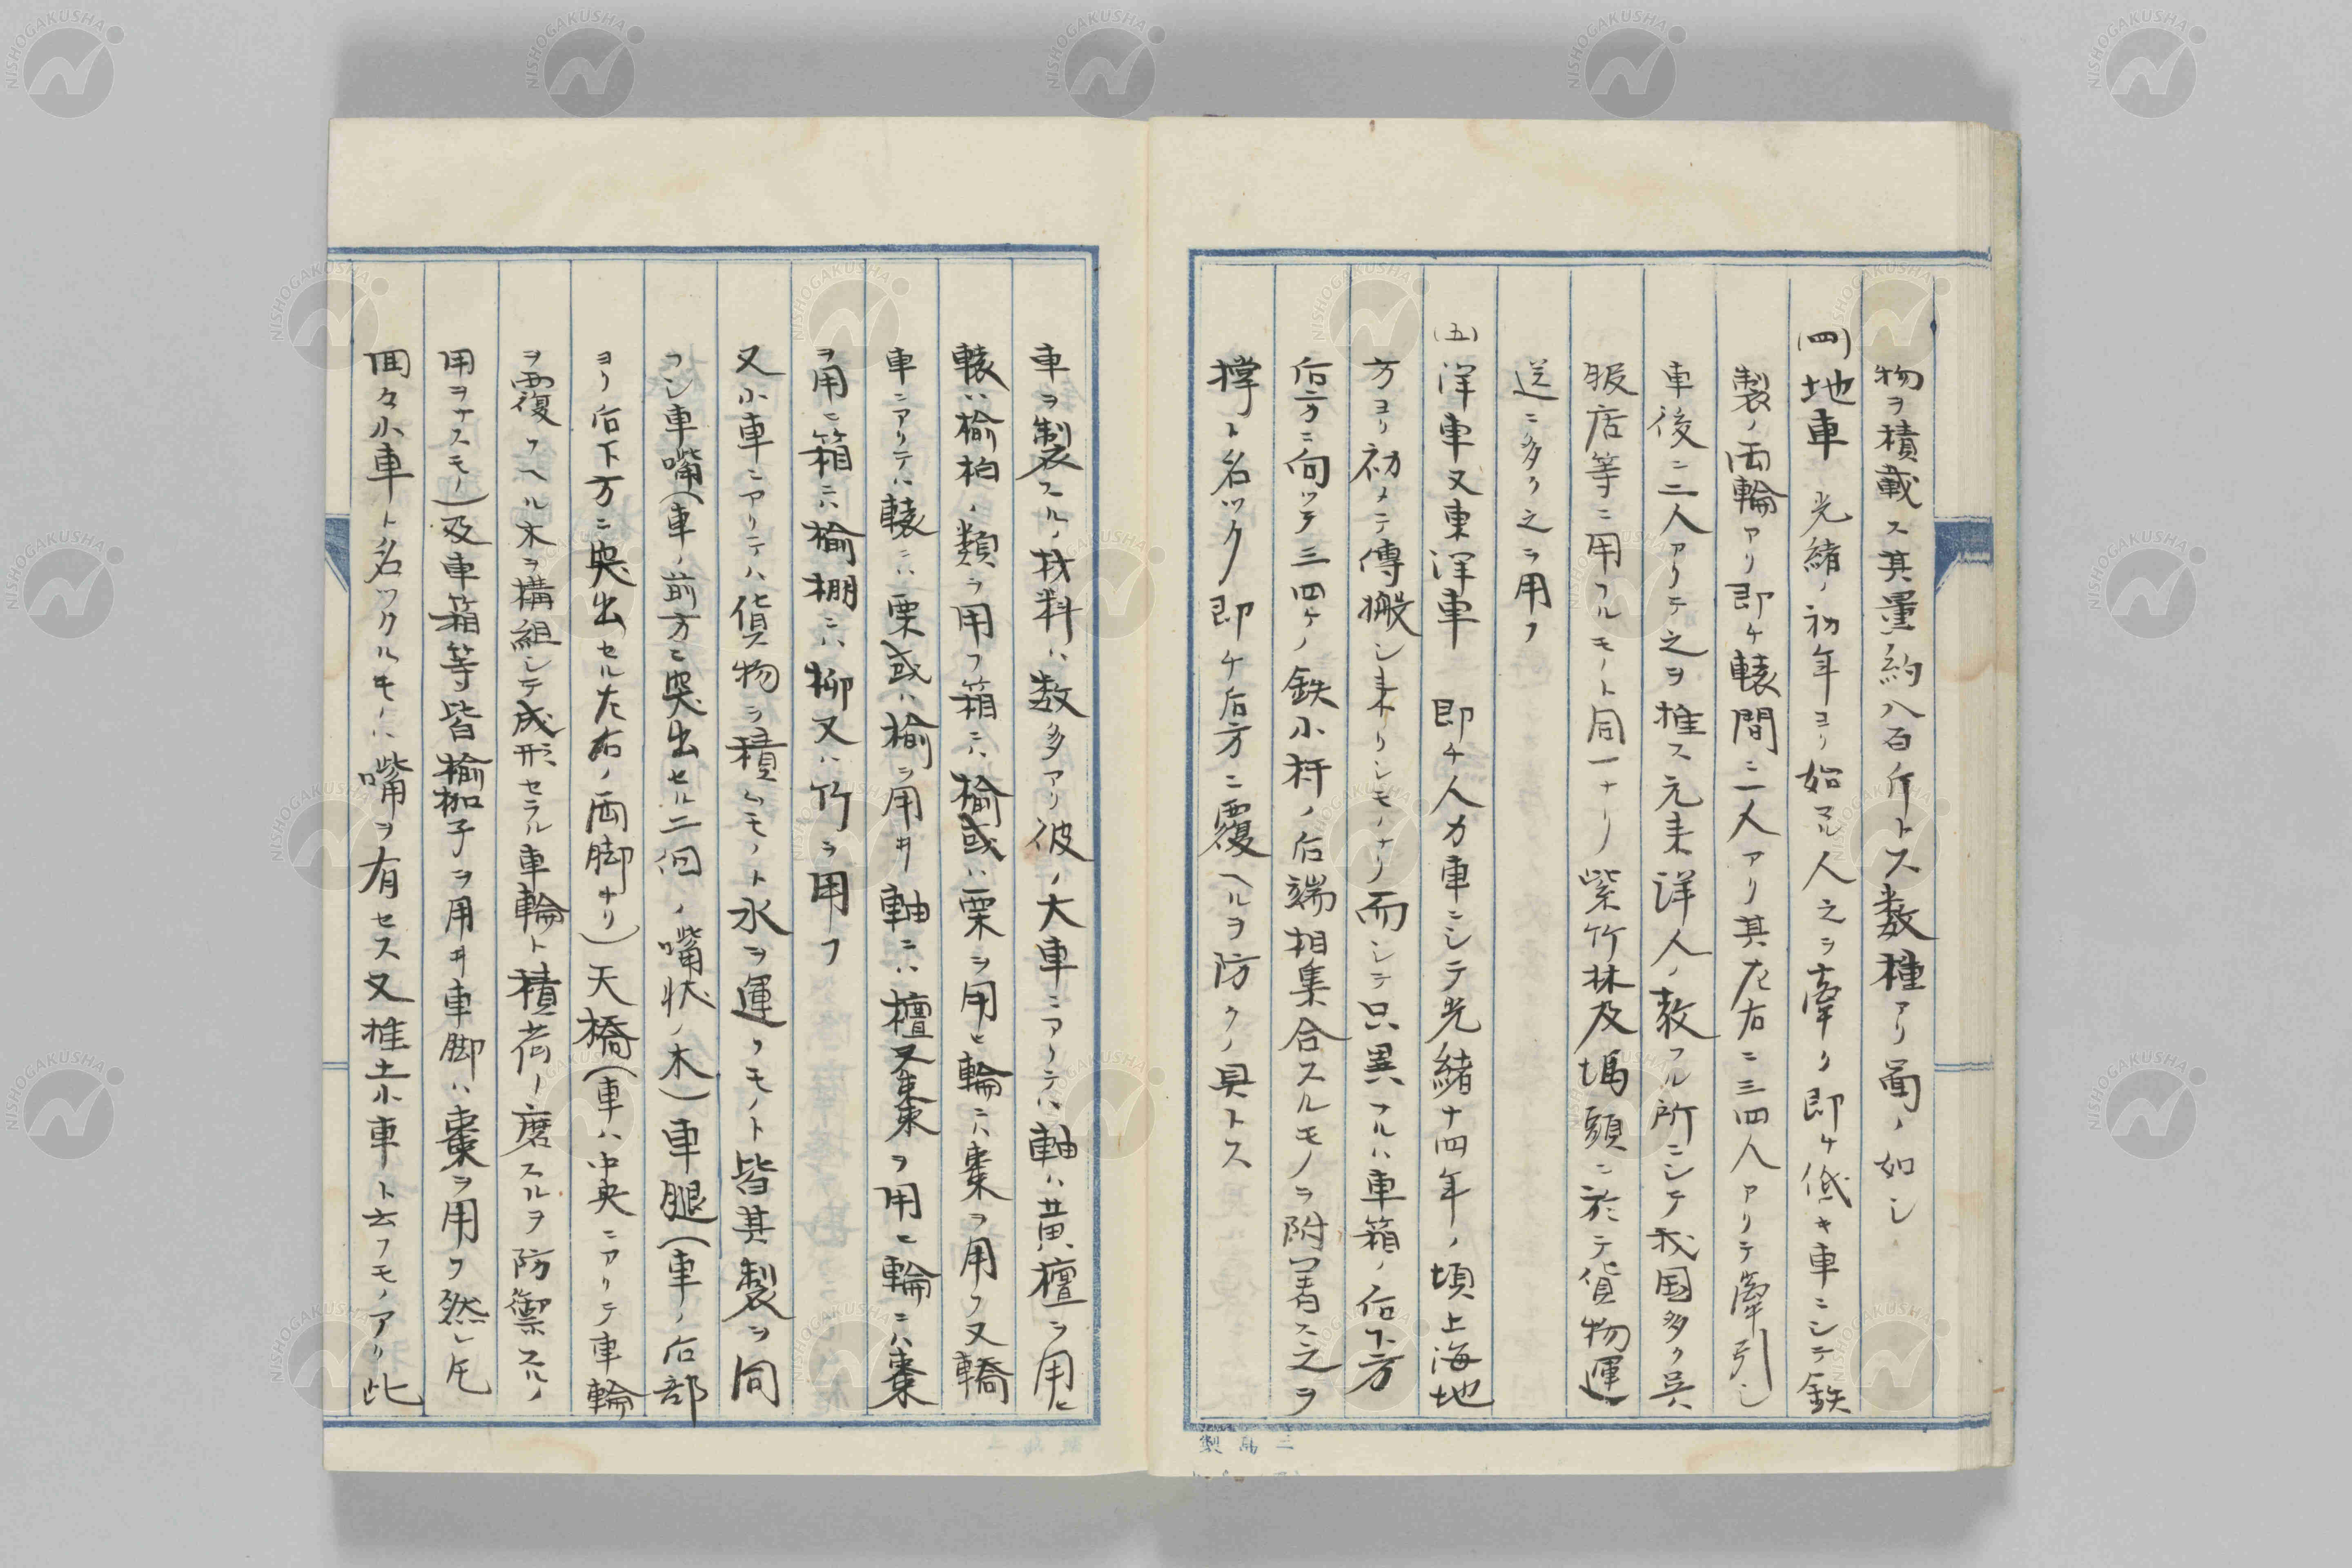 物ヲ積載ス其量約八百斤トス数種アリ圖ノ如シ
(四)地車 光緒ノ初年ヨリ始マル人之ヲ牽ク即チ低キ車ニシテ鉄
製ノ両輪アリ即チ轅間ニ二人アリ其左右ニ三四人アリテ牽引シ
車後ニ二人アリテ之ヲ推ス元来洋人ノ教フル所ニシテ我国多ク呉
服店等ニ用フルモノト同一ナリ紫竹林及埠頭ニ於テ貨物運
送ニ多ク之ヲ用フ
(五)洋車又東洋車 即チ人力車ニシテ光緒十四年ノ頃上海地
方ヨリ初メテ傳搬シ来リシモノナリ而シテ只異フルハ車箱ノ后下方
后方ニ向ッテ三四ケノ鉄小杆ノ后端相集合スルモノヲ附著ス之ヲ
撑ト名ック即チ后方ニ覆ヘルヲ防クノ具トス
車ヲ製スル材料ハ数多アリ彼ノ大車ニアリテハ軸ハ黄檀ヲ用ヒ
轅ハ楡柏ノ類ヲ用フ箱ニハ楡或ハ栗ヲ用ヒ輪ニハ棗ヲ用フ又轎
車ニアリテハ轅ニハ栗或ハ楡ヲ用ヰ軸ニハ檀又棗ヲ用ヒ輪ニハ棗
ヲ用ヒ箱ニハ楡棚ニハ柳又ハ竹ヲ用フ
又小車ニアリテハ貨物ヲ積ムモノト水ヲ運フモノト皆其製ヲ同
フシ車嘴(車ノ前方ニ突出セル二個ノ嘴状ノ木)車腿(車ノ后部
ヨリ后下方ニ突出セル左右ノ両脚ナリ)天橋(車ハ中央ニアリテ車輪
ヲ覆フヘル木ヲ構組シテ成形セラル車輪ト積荷ノ磨スルヲ防禦スルノ
用ヲナスモノ)及車箱等皆楡枷子ヲ用ヰ車脚ハ棗ヲ用フ然レ𪜈
囲々小車ト名ックルモノハ嘴ヲ有セス又推土小車ト云フモノアリ此
三島製
NISHOGAKUSHA